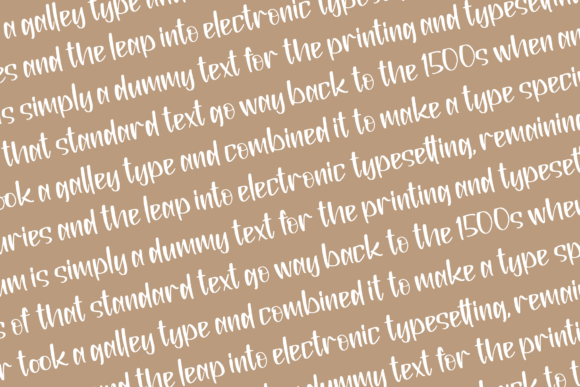 a galley type and
es and the leap into electronic
is simply a dummy text for the printing and typesettin
that standard text go way back to the 1500s when an
ook a galley type and combined it to make a type speci
uries and the leap into electronic typesetting, remaining
um is simply a dummy text for the printing and typeset
s of that standard text go way back to the 1500s when
r took a galley type and combined it to make a type sp
and the leap into electronic typesetting, remain
a dummy text for the printi
back to t